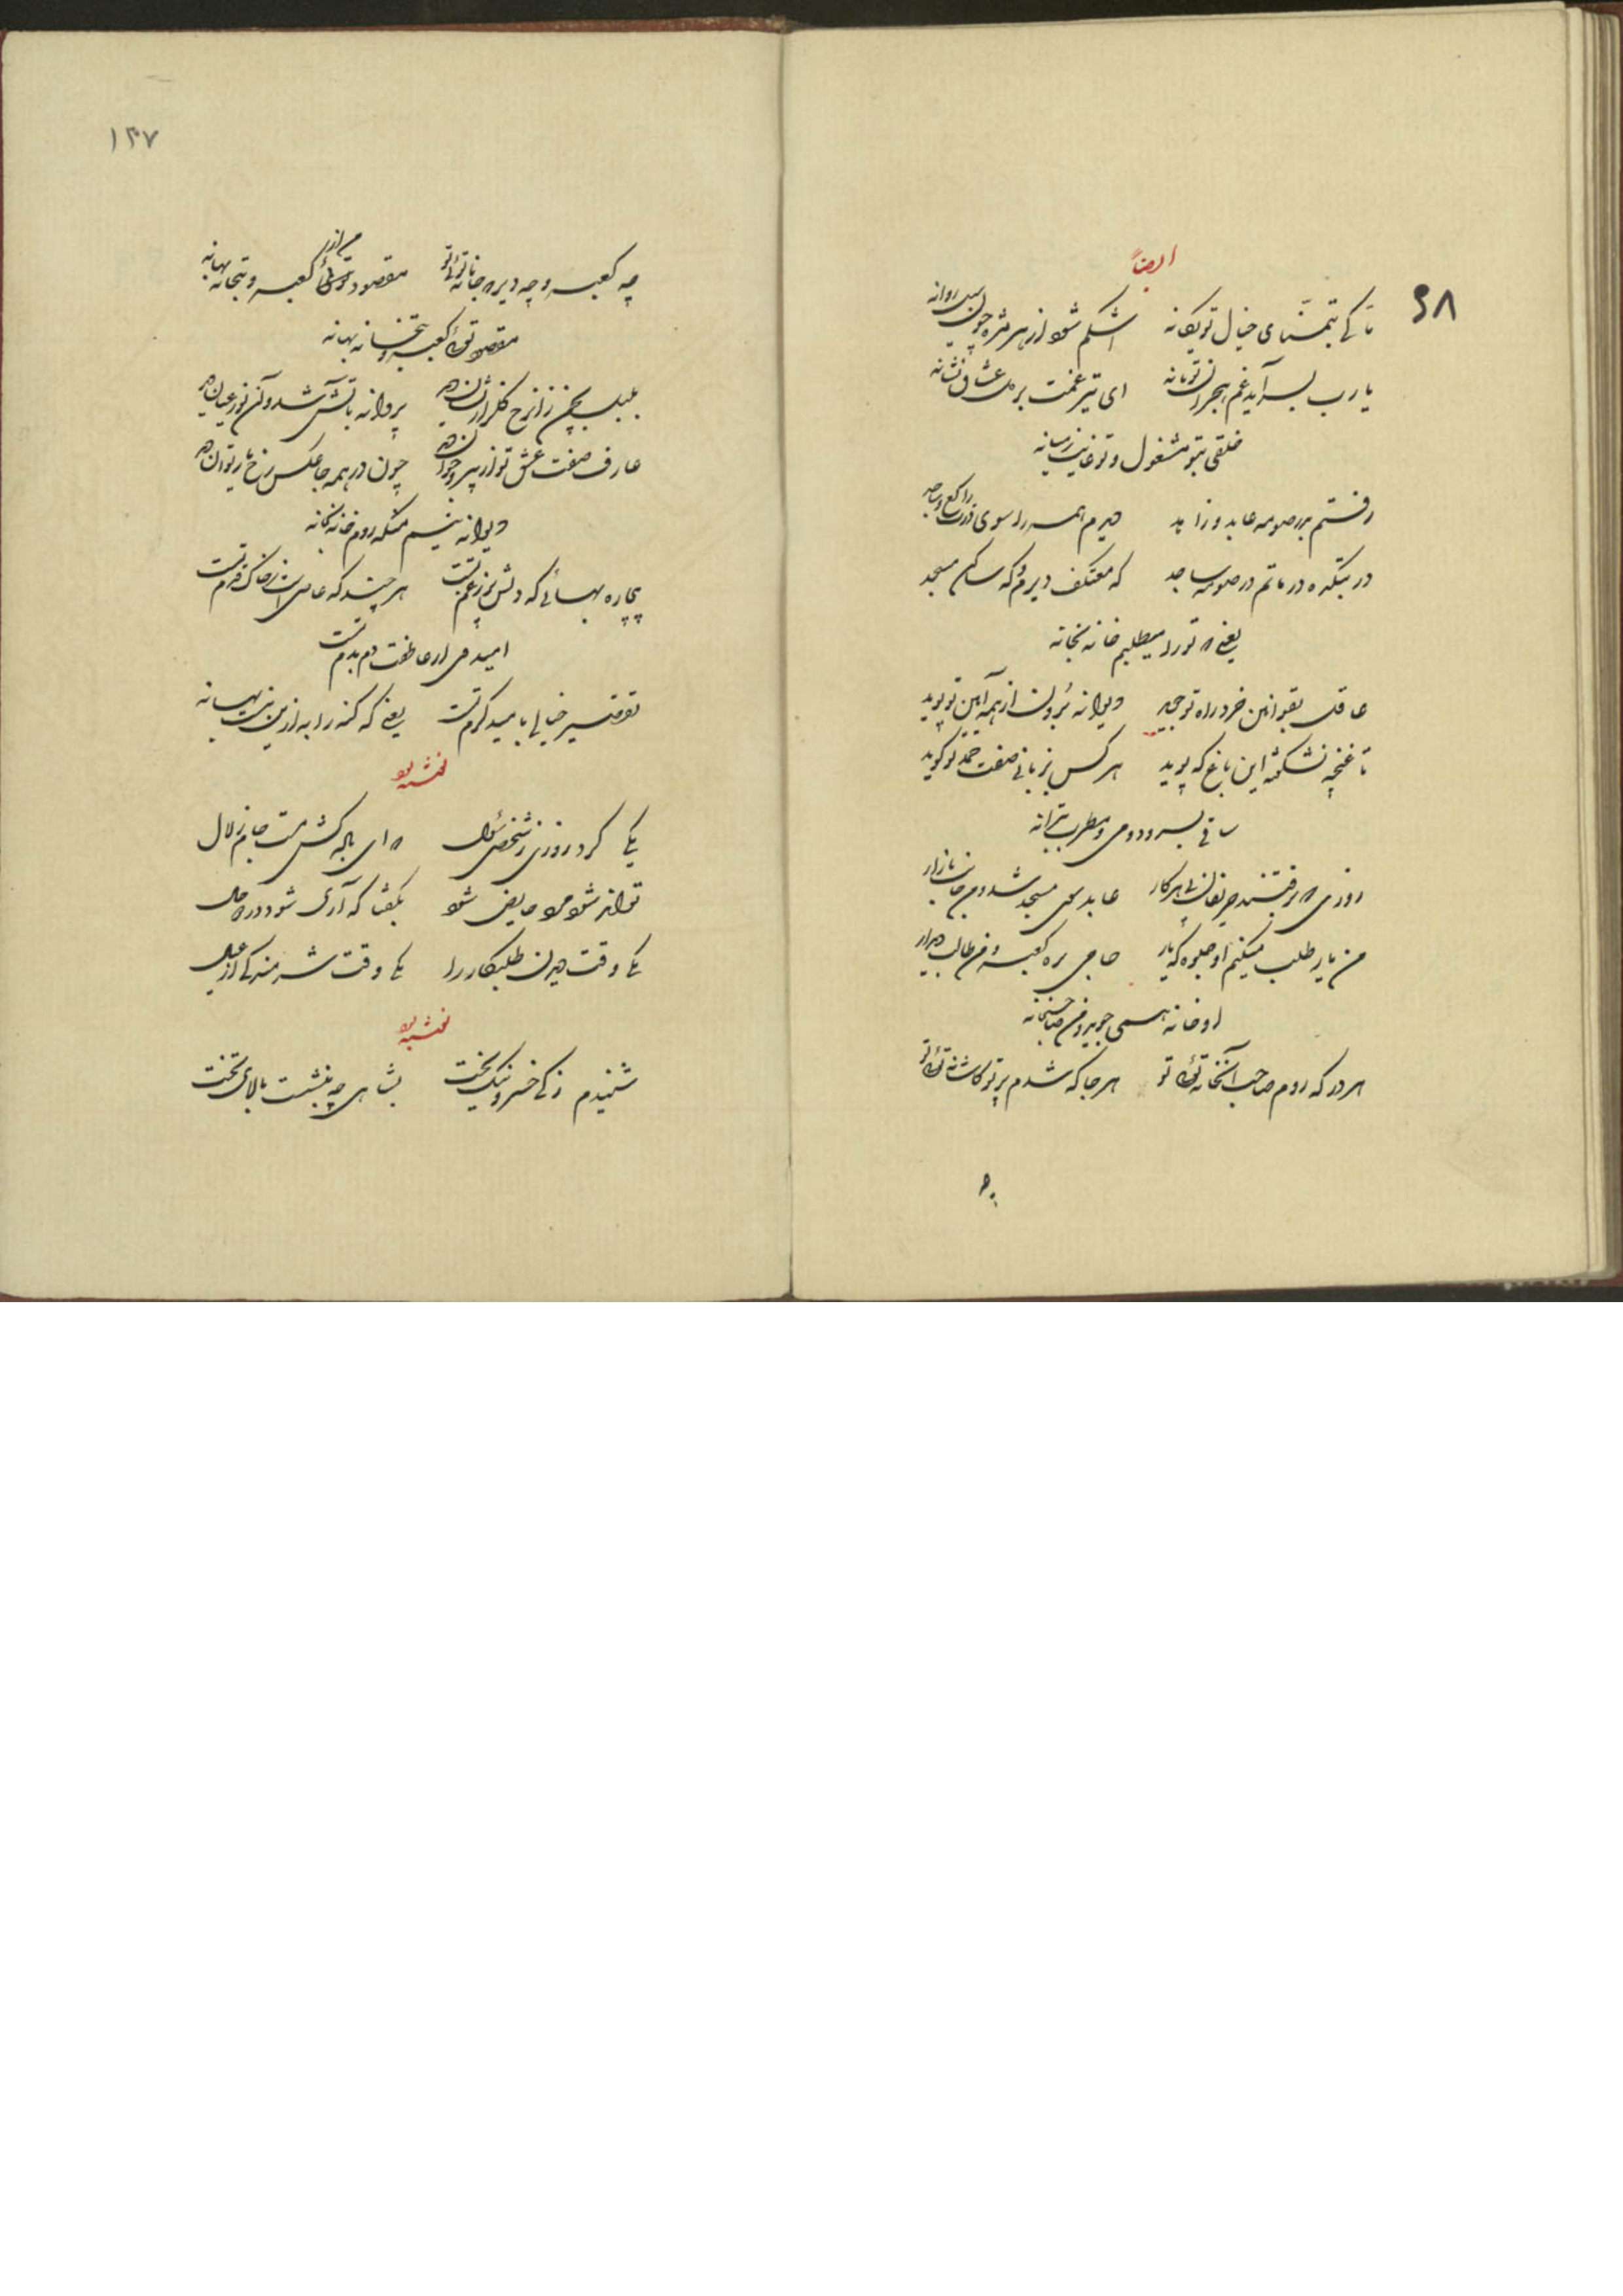 ایضاً
۶۸
تا کی بتمنّای خیال تو یگانه اشکم شود از هر مژه چون سیل روانه
یا رب بسر آید غم هجران تو یا نه ای تیر غمت بر دل عشاق نشانه
خلقی بتو مشغول و تو غایب ز میانه
رفتم بدر صومعه عابد و زاهد دیدم همه را سوی رخت راکع و ساجد
در بتکده در ماتم در صومعه ساجد که معتکف دیرم و که ساکن مسجد
یعنی که تو را میطلبم خانه بخانه
عاقل بقوانین خرد راه تو جوید دیوانه برون از همه آیین تو پوید
تا غنچه نشکفته این باغ که بوید هر کس بزبانی صفت حمد تو گوید
ساقی بسرود و می و مطرب بترانه
روزی که برفتند حریفان پی هر کار عابد سوی مسجد شد و من جانب بازار
من یار طلب میکنم او جلوه که یار حاجی بره کعبه و من طالب دیدار
او خانه همی جوید و من صاحبخانه
هر در که روم صاحب آنخانه توئی تو هر جا که شدم پرتو کاشانه توئی تو
۱۴۷
چه کعبه و چه دیر که جانانه توئی تو مقصود من از کعبه و بتخانه بهانه
مقصود توئی کعبه و بتخانه بهانه
بلبل بچمن زان رخ گلزار نشان دید پروانه باتش شد و آن نور عیان دید
عارف صفت عشق تو از پیر و جوان دید چون در همه جا عکس رخ یار توان دید
دیوانه نیم من که روم خانه بخانه
بیچاره بهائی که دلش پر ز غم تست هر چند که عاصی است ز خاک قدم تست
امید وی از عاطفت دم بدم تست
تقصیر خیالی بامید کرم تست یعنی که گنه را به ازین نیست بهانه
یکی کرد روزی ز شخصی سئوال که ای باده کش مست جام زلال
تواند شود مرد حایض شود بگفتا که آری شود در دو حال
یکی وقت دیدن طلبکار را یکی وقت شرمندگی از عیال
شنیدم ز کی خسرو نیک بخت بشاهی چه بنشست بالای تخت